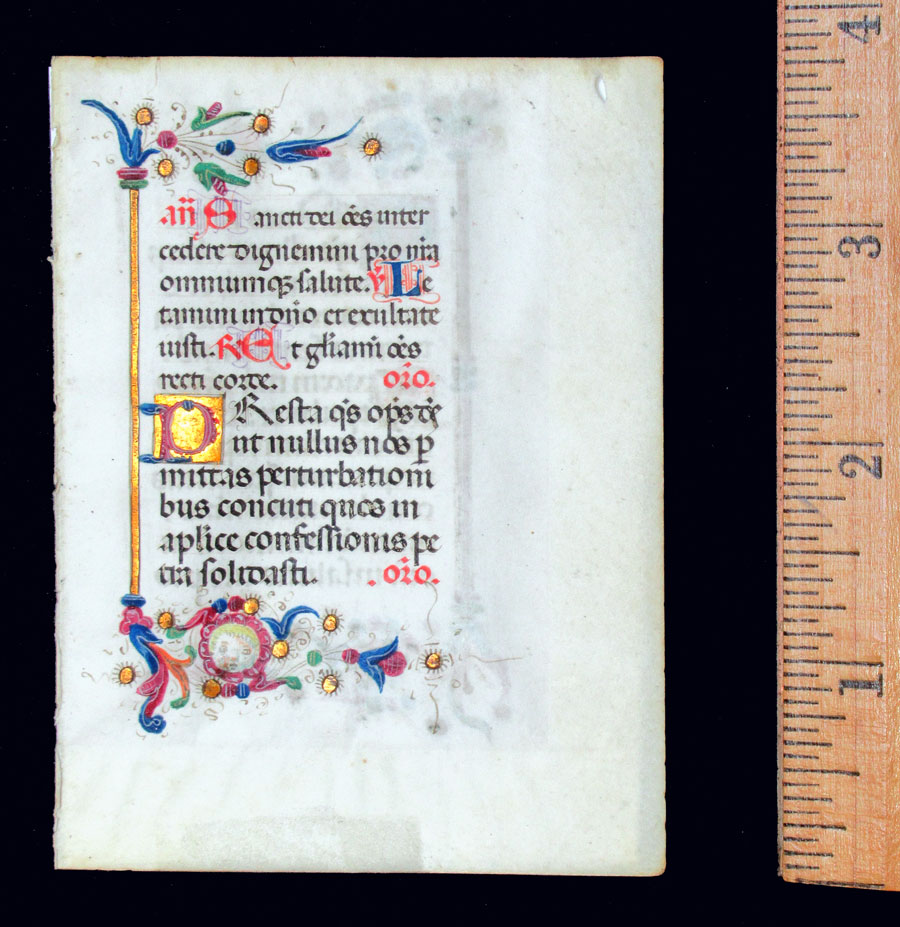 .añ S ancti dei oe̅s inter
cedere dignemini pro nr̅a
omniumq3 salute. ℣ Le
tamini in dn̅o et exultate
iusti. ℟ E t gl̅iami oe̅s
recti corde. or̅o.
PResta q̅s op̅s de̅
ut nullus nos ꝑ
mittas perturbationi
bus concuti quos in
apl̅ice confessionis pe
tra solidasti. .or̅o.
1
2
3
4